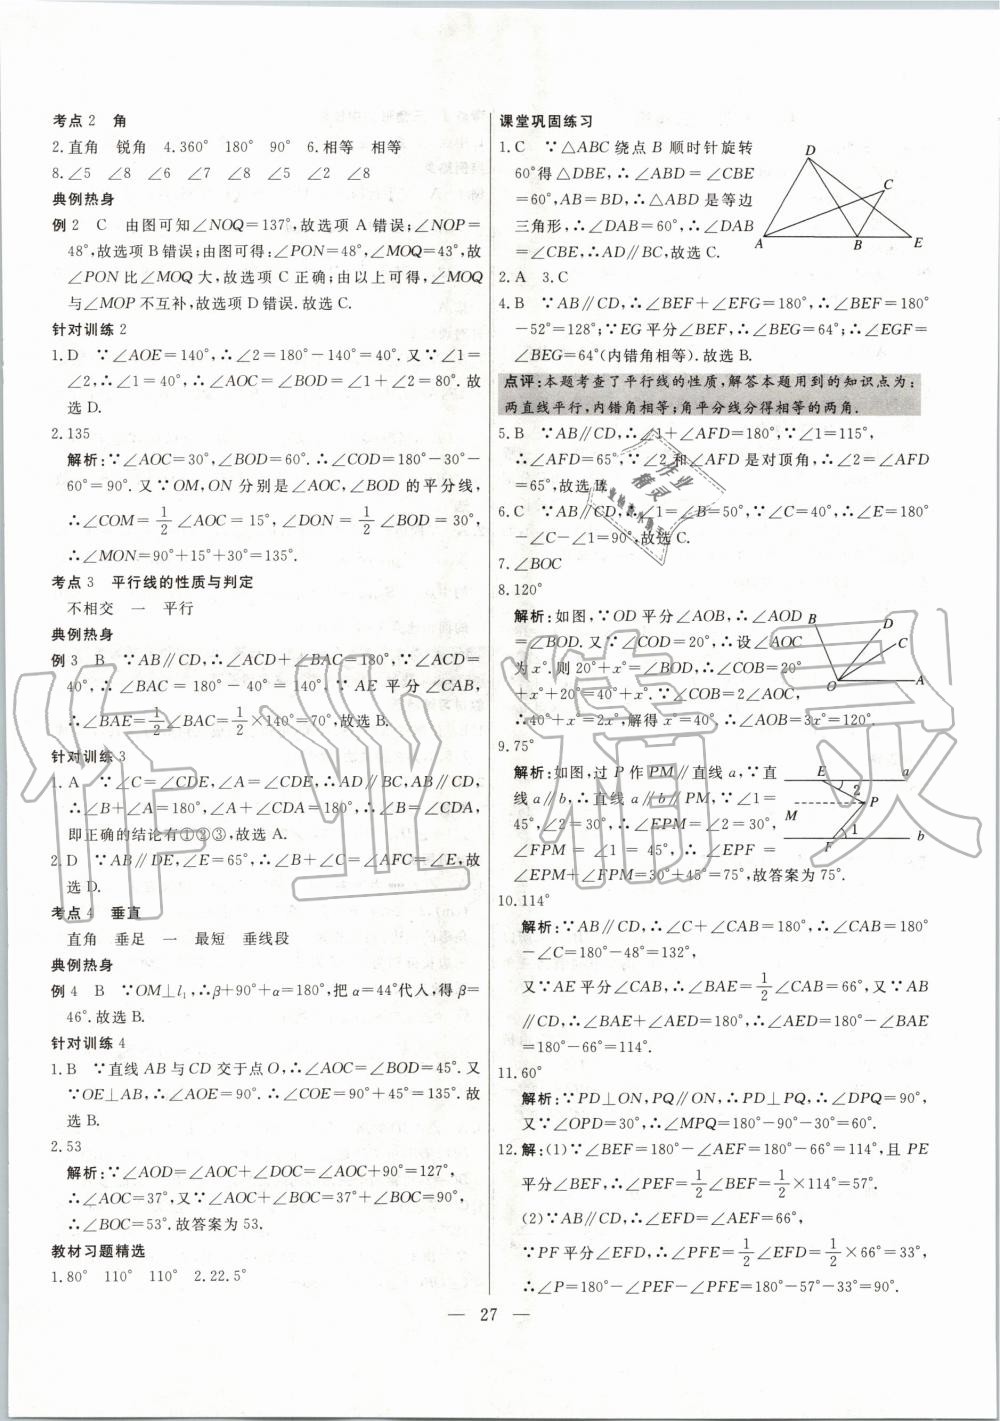 考点2 角
2.直角 锐角 4.360° 180° 90° 6.相等 相等
8.∠5 ∠8 ∠6 ∠7 ∠8 ∠5 ∠2 ∠8
典例热身
例2 C 由图可知∠NOQ=137°,故选项A错误;∠NOP=
48°,故选项B错误;由图可得:∠PON=48°,∠MOQ=43°,故
∠PON比∠MOQ大,故选项C正确;由以上可得,∠MOQ
与∠MOP不互补,故选项D错误.故选C.
针对训练2
1.D ∵∠AOE=140°,∴∠2=180°-140°=40°.又∵∠1=
∠2,∴∠1=40°,∴∠AOC=∠BOD=∠1+∠2=80°.故
选D.
2.135
解析:∵∠AOC=30°,∠BOD=60°.∴∠COD=180°-30°-
60°=90°.又∵OM,ON分别是∠AOC,∠BOD的平分线,
∴∠COM=1/2∠AOC=15°,∠DON=1/2∠BOD=30°,
∴∠MON=90°+15°+30°=135°.
考点3 平行线的性质与判定
不相交 一 平行
典例热身
例3 B ∵AB∥CD,∴∠ACD+∠BAC=180°,∵∠ACD=
40°,∴∠BAC=180°-40°=140°.∵AE平分∠CAB,
∴∠BAE=1/2∠BAC=1/2×140°=70°,故选B.
针对训练3
1.A ∵∠C=∠CDE,∠A=∠CDE,∴AD∥BC,AB∥CD,
∴∠B+∠A=180°,∠A+∠CDA=180°,∴∠B=∠CDA,
即正确的结论有①②③,故选A.
2.D ∵AB∥DE,∠E=65°,∴∠B+∠C=∠AFC=∠E,故
选D.
考点4 垂直
直角 垂足 一 最短 垂线段
典例热身
例4 B ∵OM⊥l₁,∴β+90°+α=180°,把α=44°代入,得β=
46°.故选B.
针对训练4
1.B ∵直线AB与CD交于点O,∴∠AOC=∠BOD=45°.又
∵OE⊥AB,∴∠AOE=90°.∴∠COE=90°+45°=135°.故
选B.
2.53
解析:∵∠AOD=∠AOC+∠DOC=∠AOC+90°=127°,
∴∠AOC=37°,又∵∠AOC+∠BOC=37°+∠BOC=90°,
∴∠BOC=53°.故答案为53.
教材习题精选
1.80° 110° 110° 2.22.5°
课堂巩固练习
1.C ∵△ABC绕点B顺时针旋转
60°得△DBE,∴∠ABD=∠CBE
=60°,AB=BD,∴△ABD是等边
三角形,∴∠DAB=60°,∴∠DAB
=∠CBE,∴AD∥BC,故选C.
D
C
A
B
E
2.A 3.C
4.B ∵AB∥CD,∴∠BEF+∠EFG=180°,∴∠BEF=180°
-52°=128°;∵EG平分∠BEF,∴∠BEG=64°;∴∠EGF=
∠BEG=64°(内错角相等).故选B.
点评:本题考查了平行线的性质,解答本题用到的知识点为:
两直线平行,内错角相等;角平分线分得相等的两角.
5.B ∵AB∥CD,∴∠1+∠AFD=180°,∵∠1=115°,
∴∠AFD=65°,∵∠2和∠AFD是对顶角,∴∠2=∠AFD
=65°,故选B.
6.C ∵AB∥CD,∴∠1=∠B=50°,∵∠C=40°,∴∠E=180°
-∠C-∠1=90°,故选C.
7.∠BOC
8.120°
解析:如图,∵OD平分∠AOB,∴∠AOD
=∠BOD.又∵∠COD=20°,∴设∠AOC
为x°.则20°+x°=∠BOD,∴∠COB=20°
+x°+20°=40°+x°.∵∠COB=2∠AOC,
∴40°+x°=2x°,解得x°=40°.∴∠AOB=3x°=120°.
B
D
C
O
A
9.75°
解析:如图,过P作PM∥直线a,∵直
线a∥b,∴直线a∥b∥PM,∵∠1=
45°,∠2=30°,∴∠EPM=∠2=30°,
∠FPM=∠1=45°,∴∠EPF=
∠EPM+∠FPM=30°+45°=75°,故答案为75°.
E
a
2
P
M
1
F
b
10.114°
解析:∵AB∥CD,∴∠C+∠CAB=180°,∴∠CAB=180°
-∠C=180°-48°=132°,
又∵AE平分∠CAB,∴∠BAE=1/2∠CAB=66°,又∵AB
∥CD,∴∠BAE+∠AED=180°,∴∠AED=180°-∠BAE
=180°-66°=114°.
11.60°
解析:∵PD⊥ON,PQ∥ON,∴PD⊥PQ,∴∠DPQ=90°,
又∵∠OPD=30°,∴∠MPQ=180°-90°-30°=60°.
12.解:(1)∵∠BEF=180°-∠AEF=180°-66°=114°,且PE
平分∠BEF,∴∠PEF=1/2∠BEF=1/2×114°=57°.
(2)∵AB∥CD,∴∠EFD=∠AEF=66°,
∵PF平分∠EFD,∴∠PFE=1/2∠EFD=1/2×66°=33°,
∴∠P=180°-∠PEF-∠PFE=180°-57°-33°=90°.
— 27 —
作业精灵